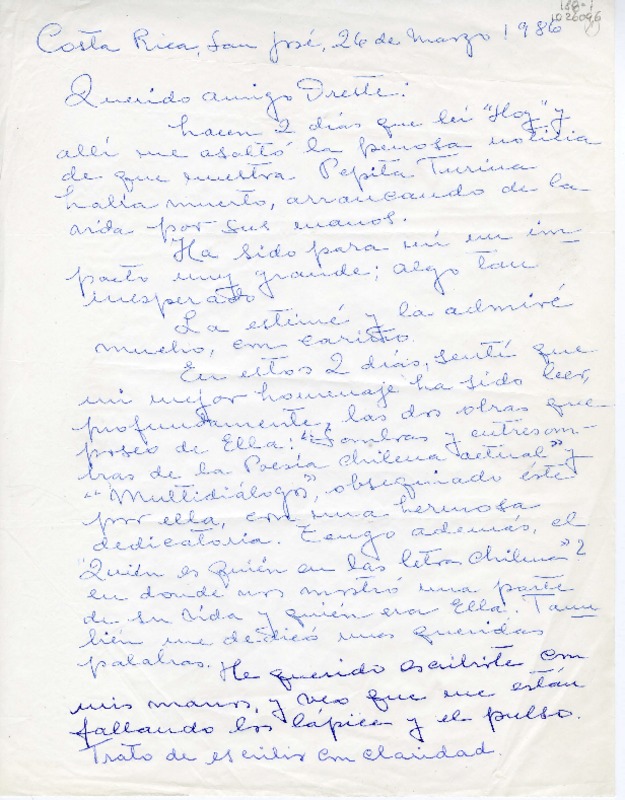 Costa Rica, San José, 26 de Marzo 1986
Querido amigo Oreste:
hacen 2 días que leí "Hoy" y
allí me asaltó la penosa noticia
de que nuestra Pepita Turina
había muerto, arrancando de la
vida por sus manos.
Ha sido para mí un im
pacto muy grande; algo tan
inesperado
La estimé y la admiré
mucho, con cariño.
En estos 2 días, sentí que
mi mejor homenaje ha sido leer,
profundamente, las dos obras que
poseo de Ella: "Sombras y entresom-
bras de la Poesía chilena actual" y
"Multidiálogos", obsequiado éste
por ella, con una hermosa
dedicatoria. Tengo además, el
"Quién es quién en las letras chilenas"?
en donde nos mostró una parte
de su vida y quién era Ella. Tam
bién me dedicó unas queridas
palabras. He querido escribirte con
mis manos, y veo que me están
fallando los lápices y el pulso.
Trato de escribir con claridad.